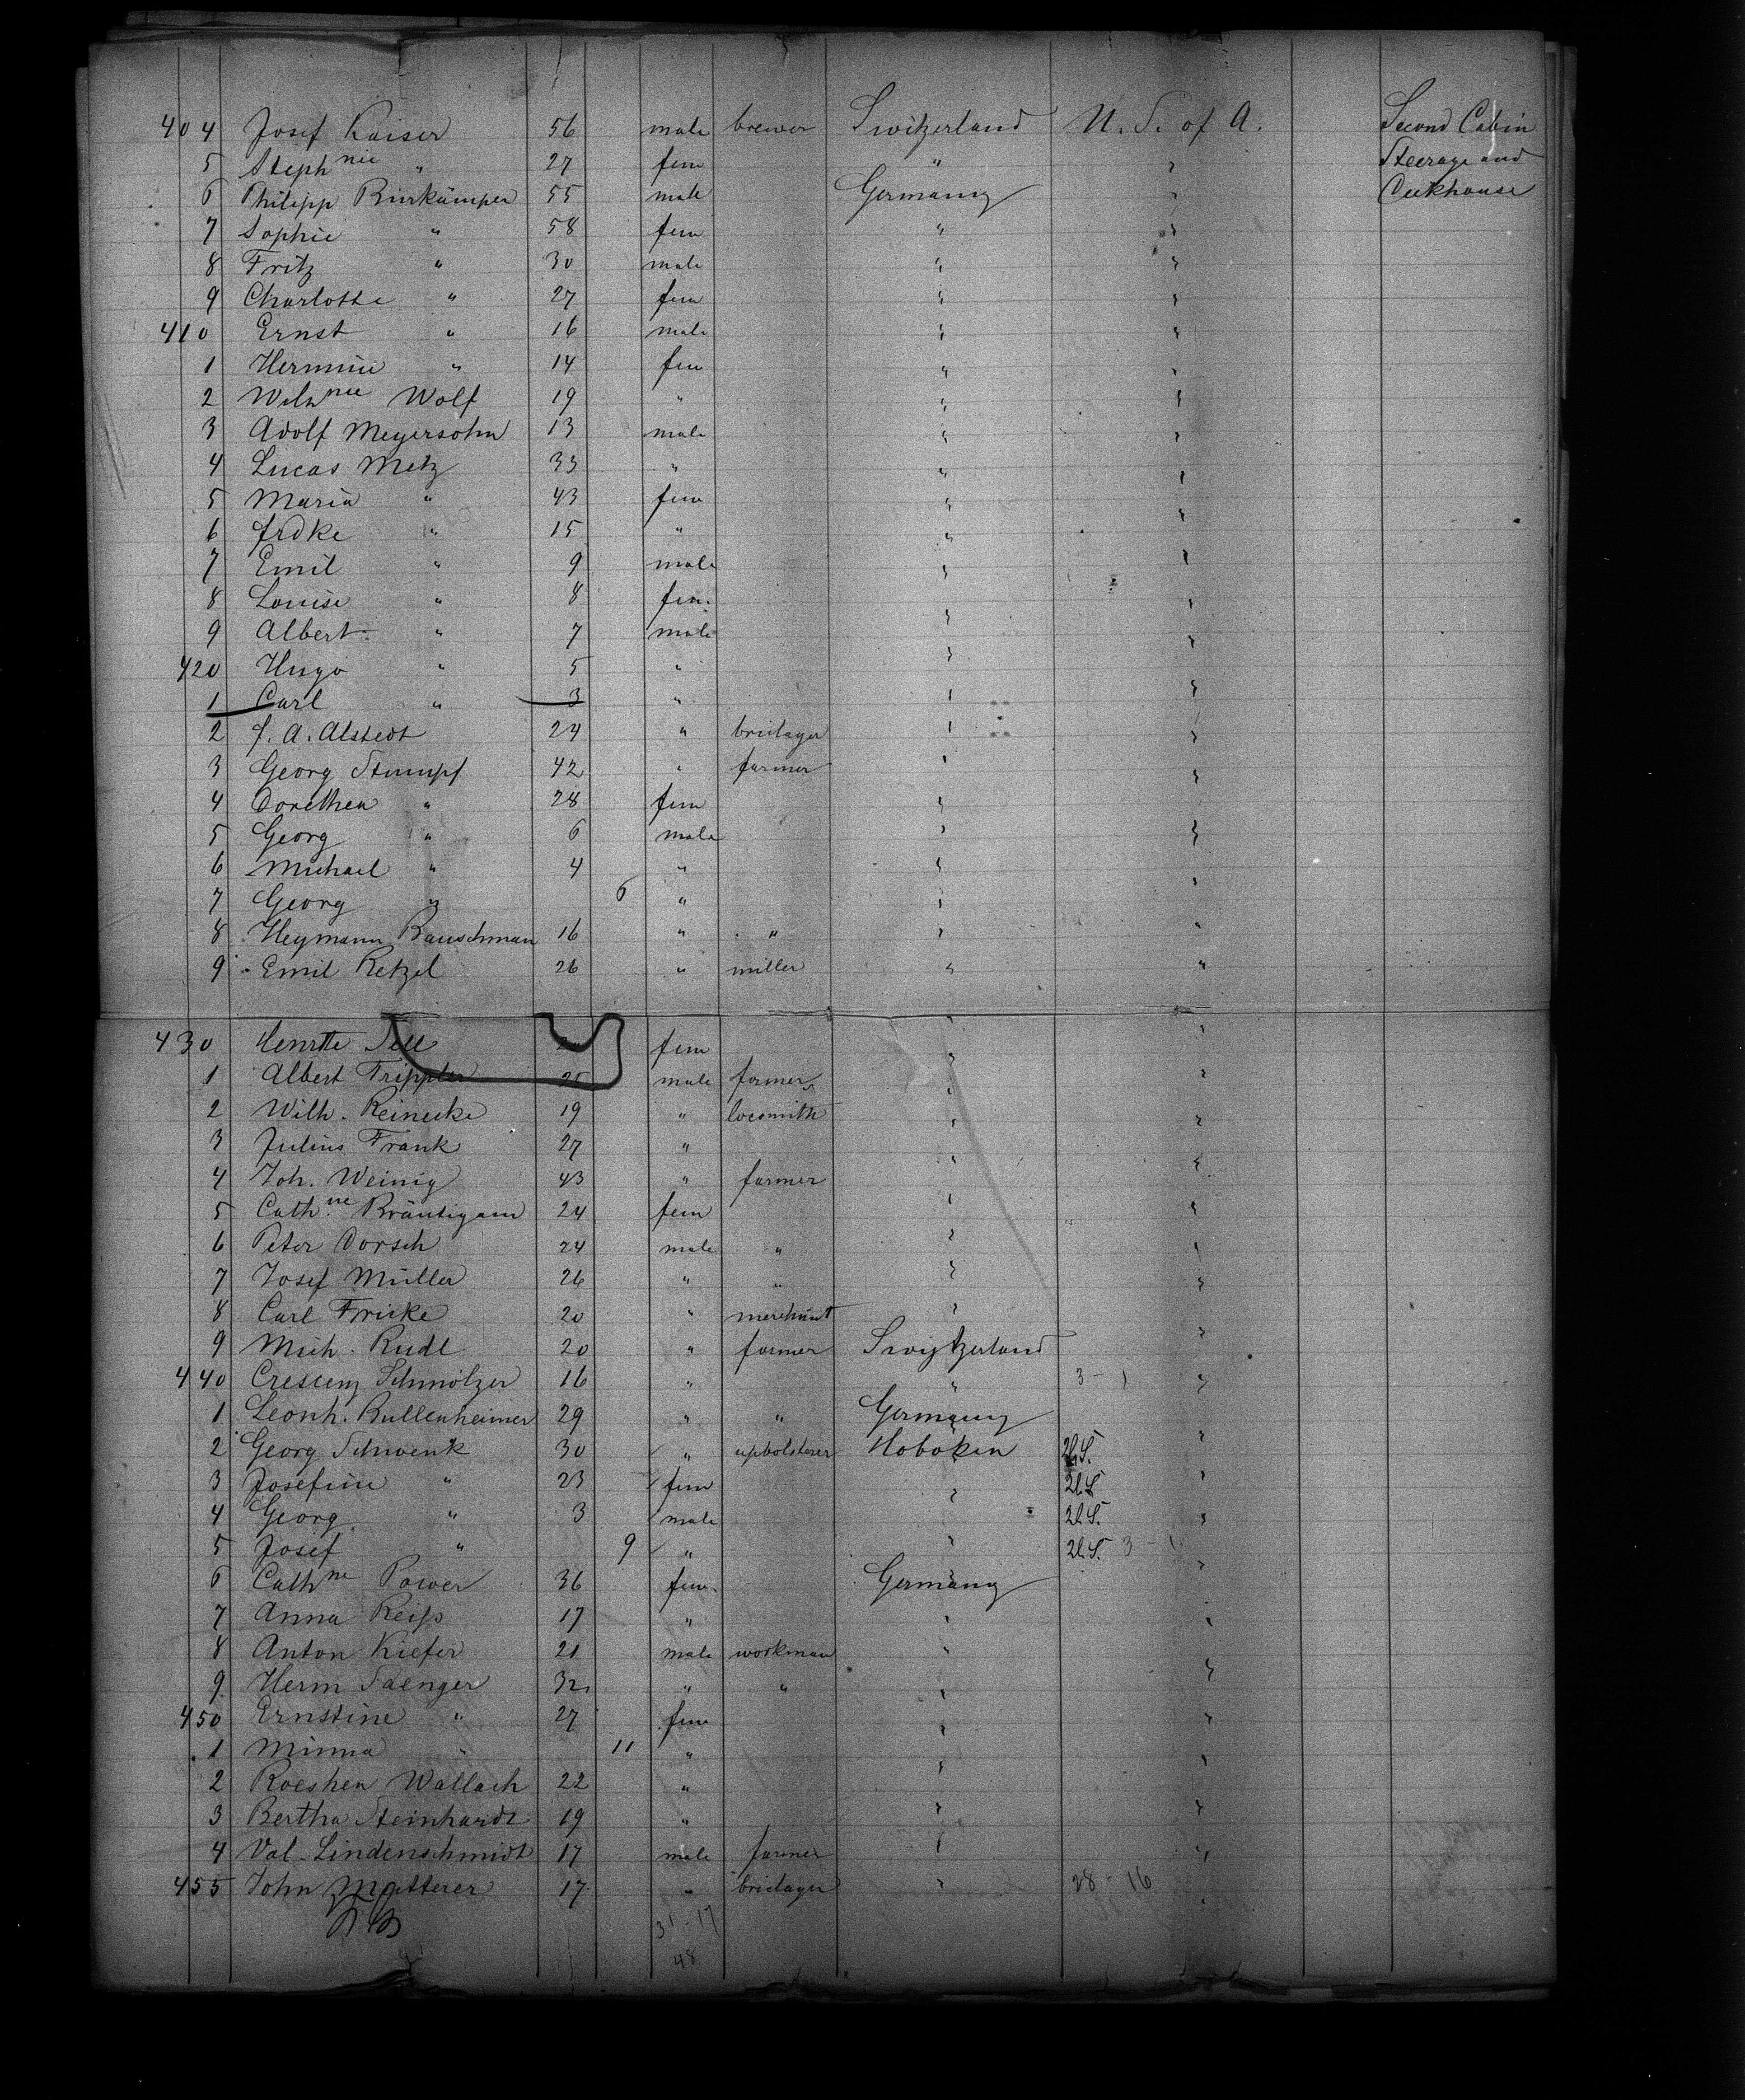 404 Josef Kaiser 56 male brewer Switzerland U. S. of A. Second Cabin
5 Stephnie " 27 fem " " Steerage and
6 Philipp Binkämper 55 male Germany "
7 Sophie " 58 fem " "
8 Fritz " 30 male " "
9 Charlotte " 27 fem " "
410 Ernst " 16 male " "
1 Hermine " 14 fem " "
2 Wilhnne Wolf 19 " " "
3 Adolf Meyersohn 13 male " "
4 Lucas Metz 33 " " "
5 Maria " 43 fem " "
6 Frdke " 15 " " "
7 Emil " 9 male " "
8 Louise " 8 fem. " "
9 Albert " 7 male " "
420 Hugo " 5 " " "
1 Carl " 3 " " "
2 f. A. Alstedt 24 " briclayer " "
3 Georg Stumpf 42 " farmer " "
4 Dorethea " 28 fem " "
5 Georg " 6 male " "
6 Michael " 4 " " "
7 Georg " 6 " " "
8 Heymann Bauschman 16 " " " "
9 Emil Retzel 26 " miller " "
430 Henrtte Sell fem " "
1 Albert Trippler 25 male farmer " "
2 Wilh. Reinecke 19 " locsmith " "
3 Julius Frank 27 " " "
4 Joh. Weinig 43 " farmer " "
5 Cathne Bräutigam 24 fem " "
6 Peter Dorsch 24 male " " "
7 Josef Müller 26 " " " "
8 Carl Fricke 20 " merchant " "
9 Mich. Rudl 20 " farmer Switzerland "
440 Crescenz Schmölzer 16 " " 3 - 1 "
1 Leonh. Bullenheimer 29 " " Germany
2 Georg Schwenk 30 " upholsterer Hoboken U.S. "
3 Josefine " 23 fem " U.S. "
4 Georg " 3 male " U.S. "
5 Josef " 9 " " U.S. 3 - 1 "
6 Cathne Power 36 fem. Germany
7 Anna Reiß 17 " " "
8 Anton Kiefer 21 male workman "
9 Herm Saenger 32 " " " "
450 Ernstine " 27 fem " "
1 Minna " 11 " " "
2 Roeschen Wallach 22 " "
3 Bertha Steinhardt 19 " " "
4 Val. Lindenschmidt 17 male farmer " "
455 John Matterer 17 " briclayer " 28 - 16 "
31 - 17
48